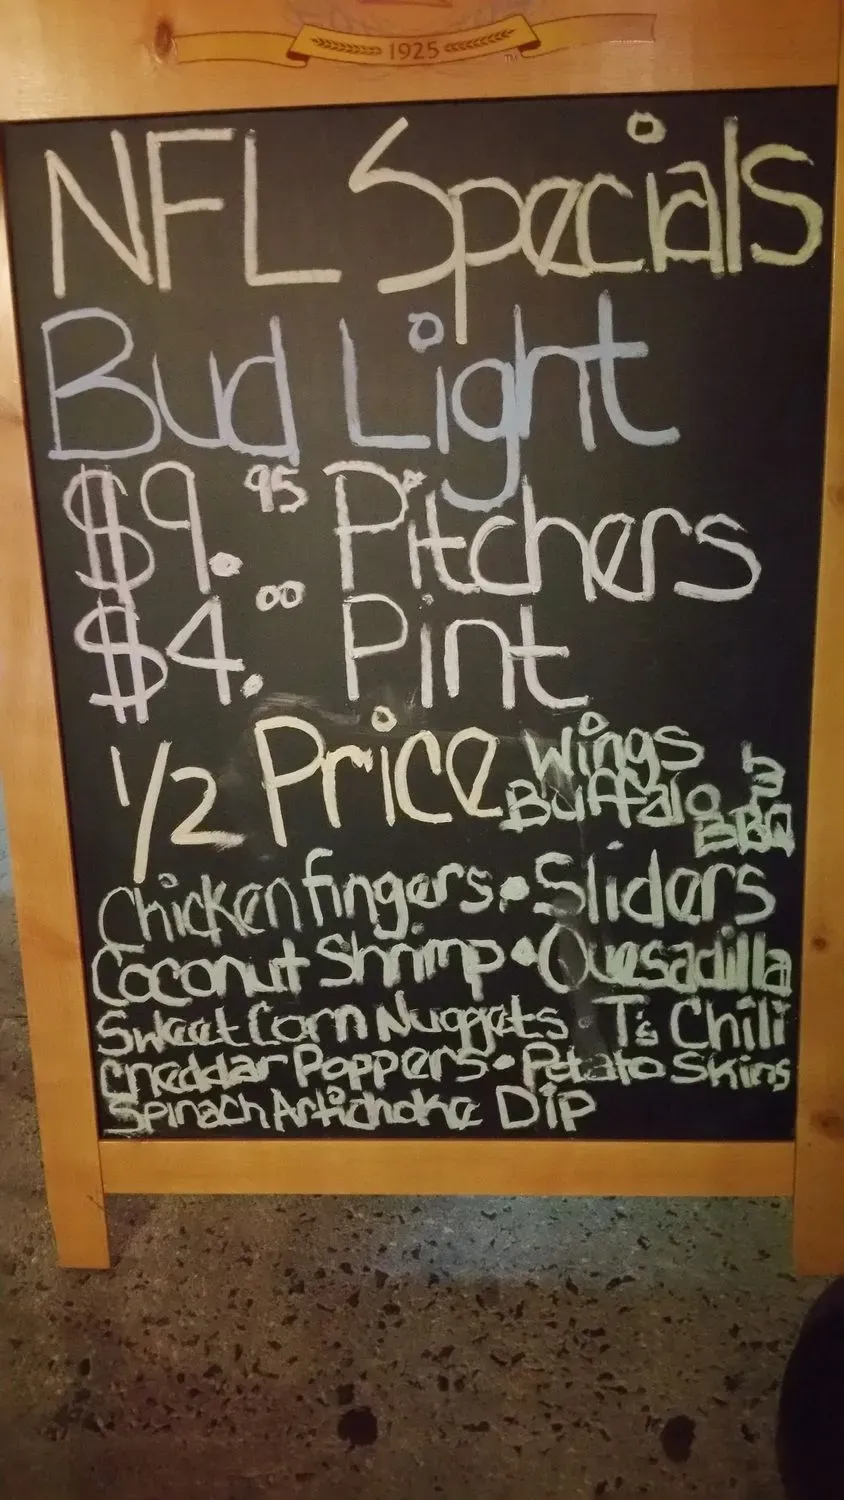 1925
TM
NFL Specials
Bud Light
$9.95 Pitchers
$4.00 Pint
1/2 Price Wings
Buffalo
BBQ
Chicken fingers • Sliders
Coconut Shrimp • Quesadilla
Sweet Corn Nuggets • T's Chili
Cheddar Poppers • Potato Skins
Spinach Artichoke Dip